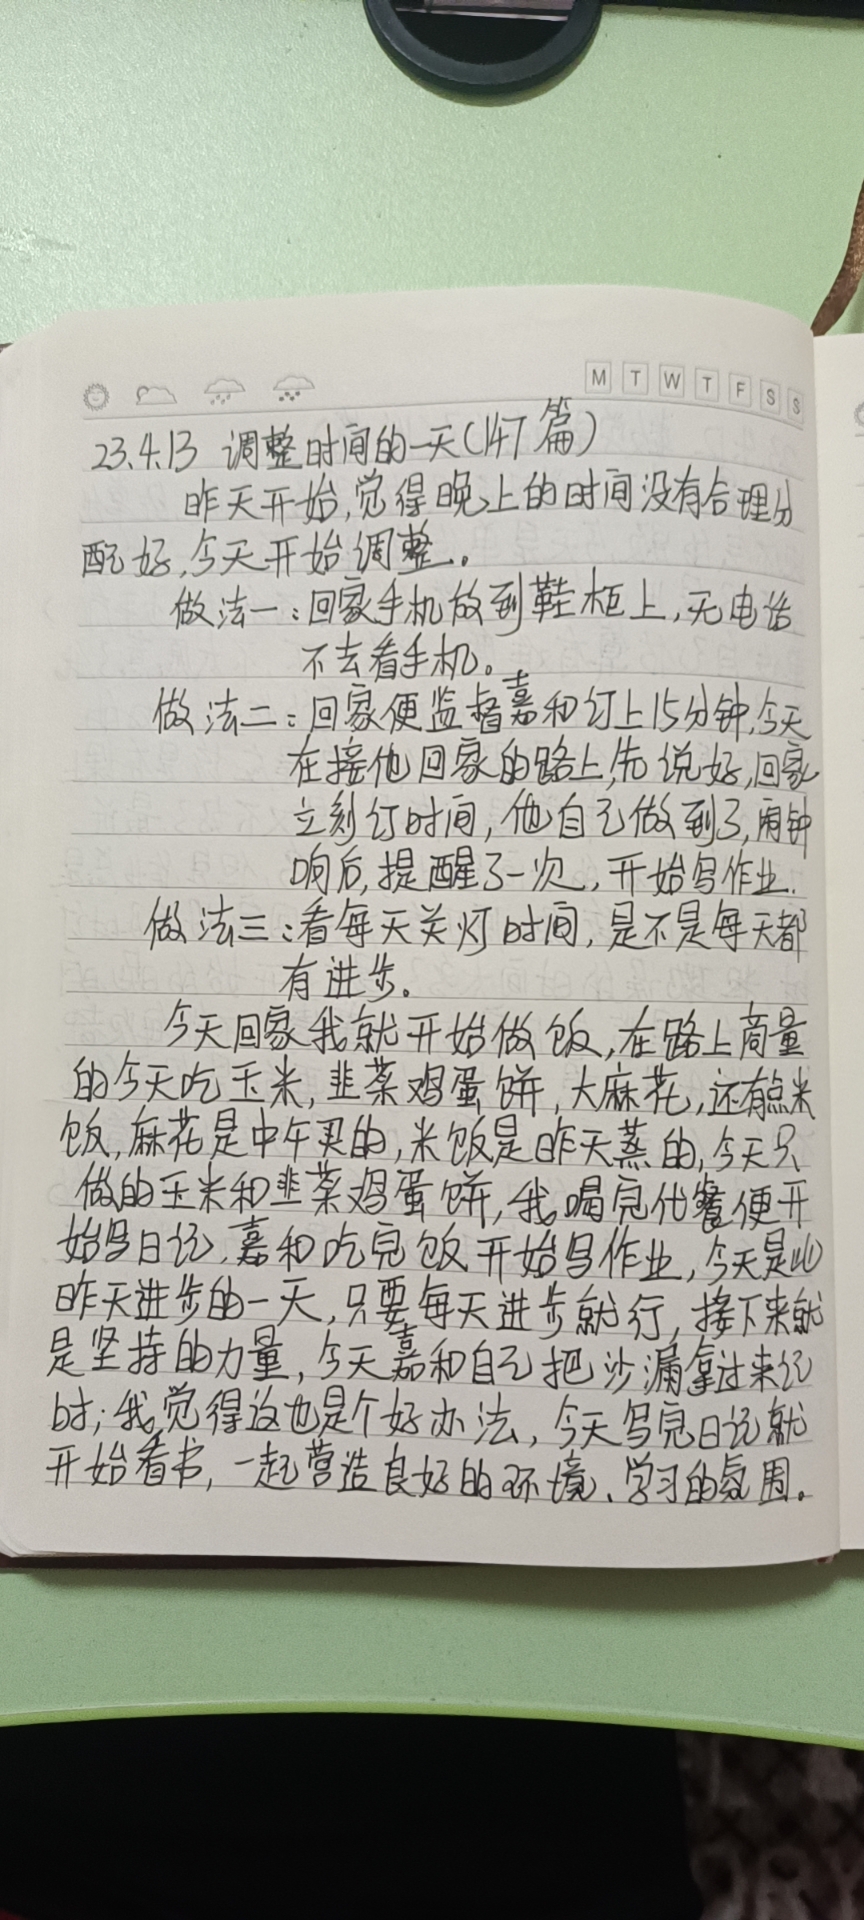 M T W T F S S
23.4.13 调整时间的一天(147篇)
昨天开始,觉得晚上的时间没有合理分
配好,今天开始调整。
做法一:回家手机放到鞋柜上,无电话
不去看手机。
做法二:回家便监督嘉和订上15分钟,今天
在接他回家的路上,先说好,回家
立刻订时间,他自己做到了,闹钟
响后,提醒了一次,开始写作业.
做法三:看每天关灯时间,是不是每天都
有进步。
今天回家我就开始做饭,在路上商量
的今天吃玉米,韭菜鸡蛋饼,大麻花,还有点米
饭,麻花是中午买的,米饭是昨天蒸的,今天只
做的玉米和韭菜鸡蛋饼,我喝完代餐便开
始写日记,嘉和吃完饭开始写作业,今天是比
昨天进步的一天,只要每天进步就行,接下来就
是坚持的力量,今天嘉和自己把沙漏拿过来记
时;我觉得这也是个好办法,今天写完日记就
开始看书,一起营造良好的环境、学习的氛围。